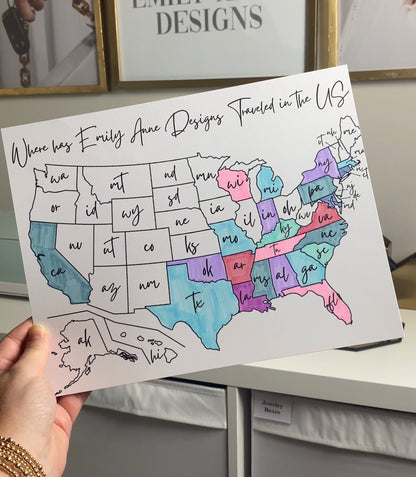 DESIGNS
Where has Emily Anne Designs Traveled in the US
wa
mt
nd
mn
or
id
wy
sd
wi
mi
ny
me
nv
ut
co
ne
ia
il
in
oh
pa
ca
az
nm
ks
mo
ky
va
ok
ar
tn
nc
tx
la
ms
al
ga
sc
fl
ak
hi
md
Jewelry
Boxes